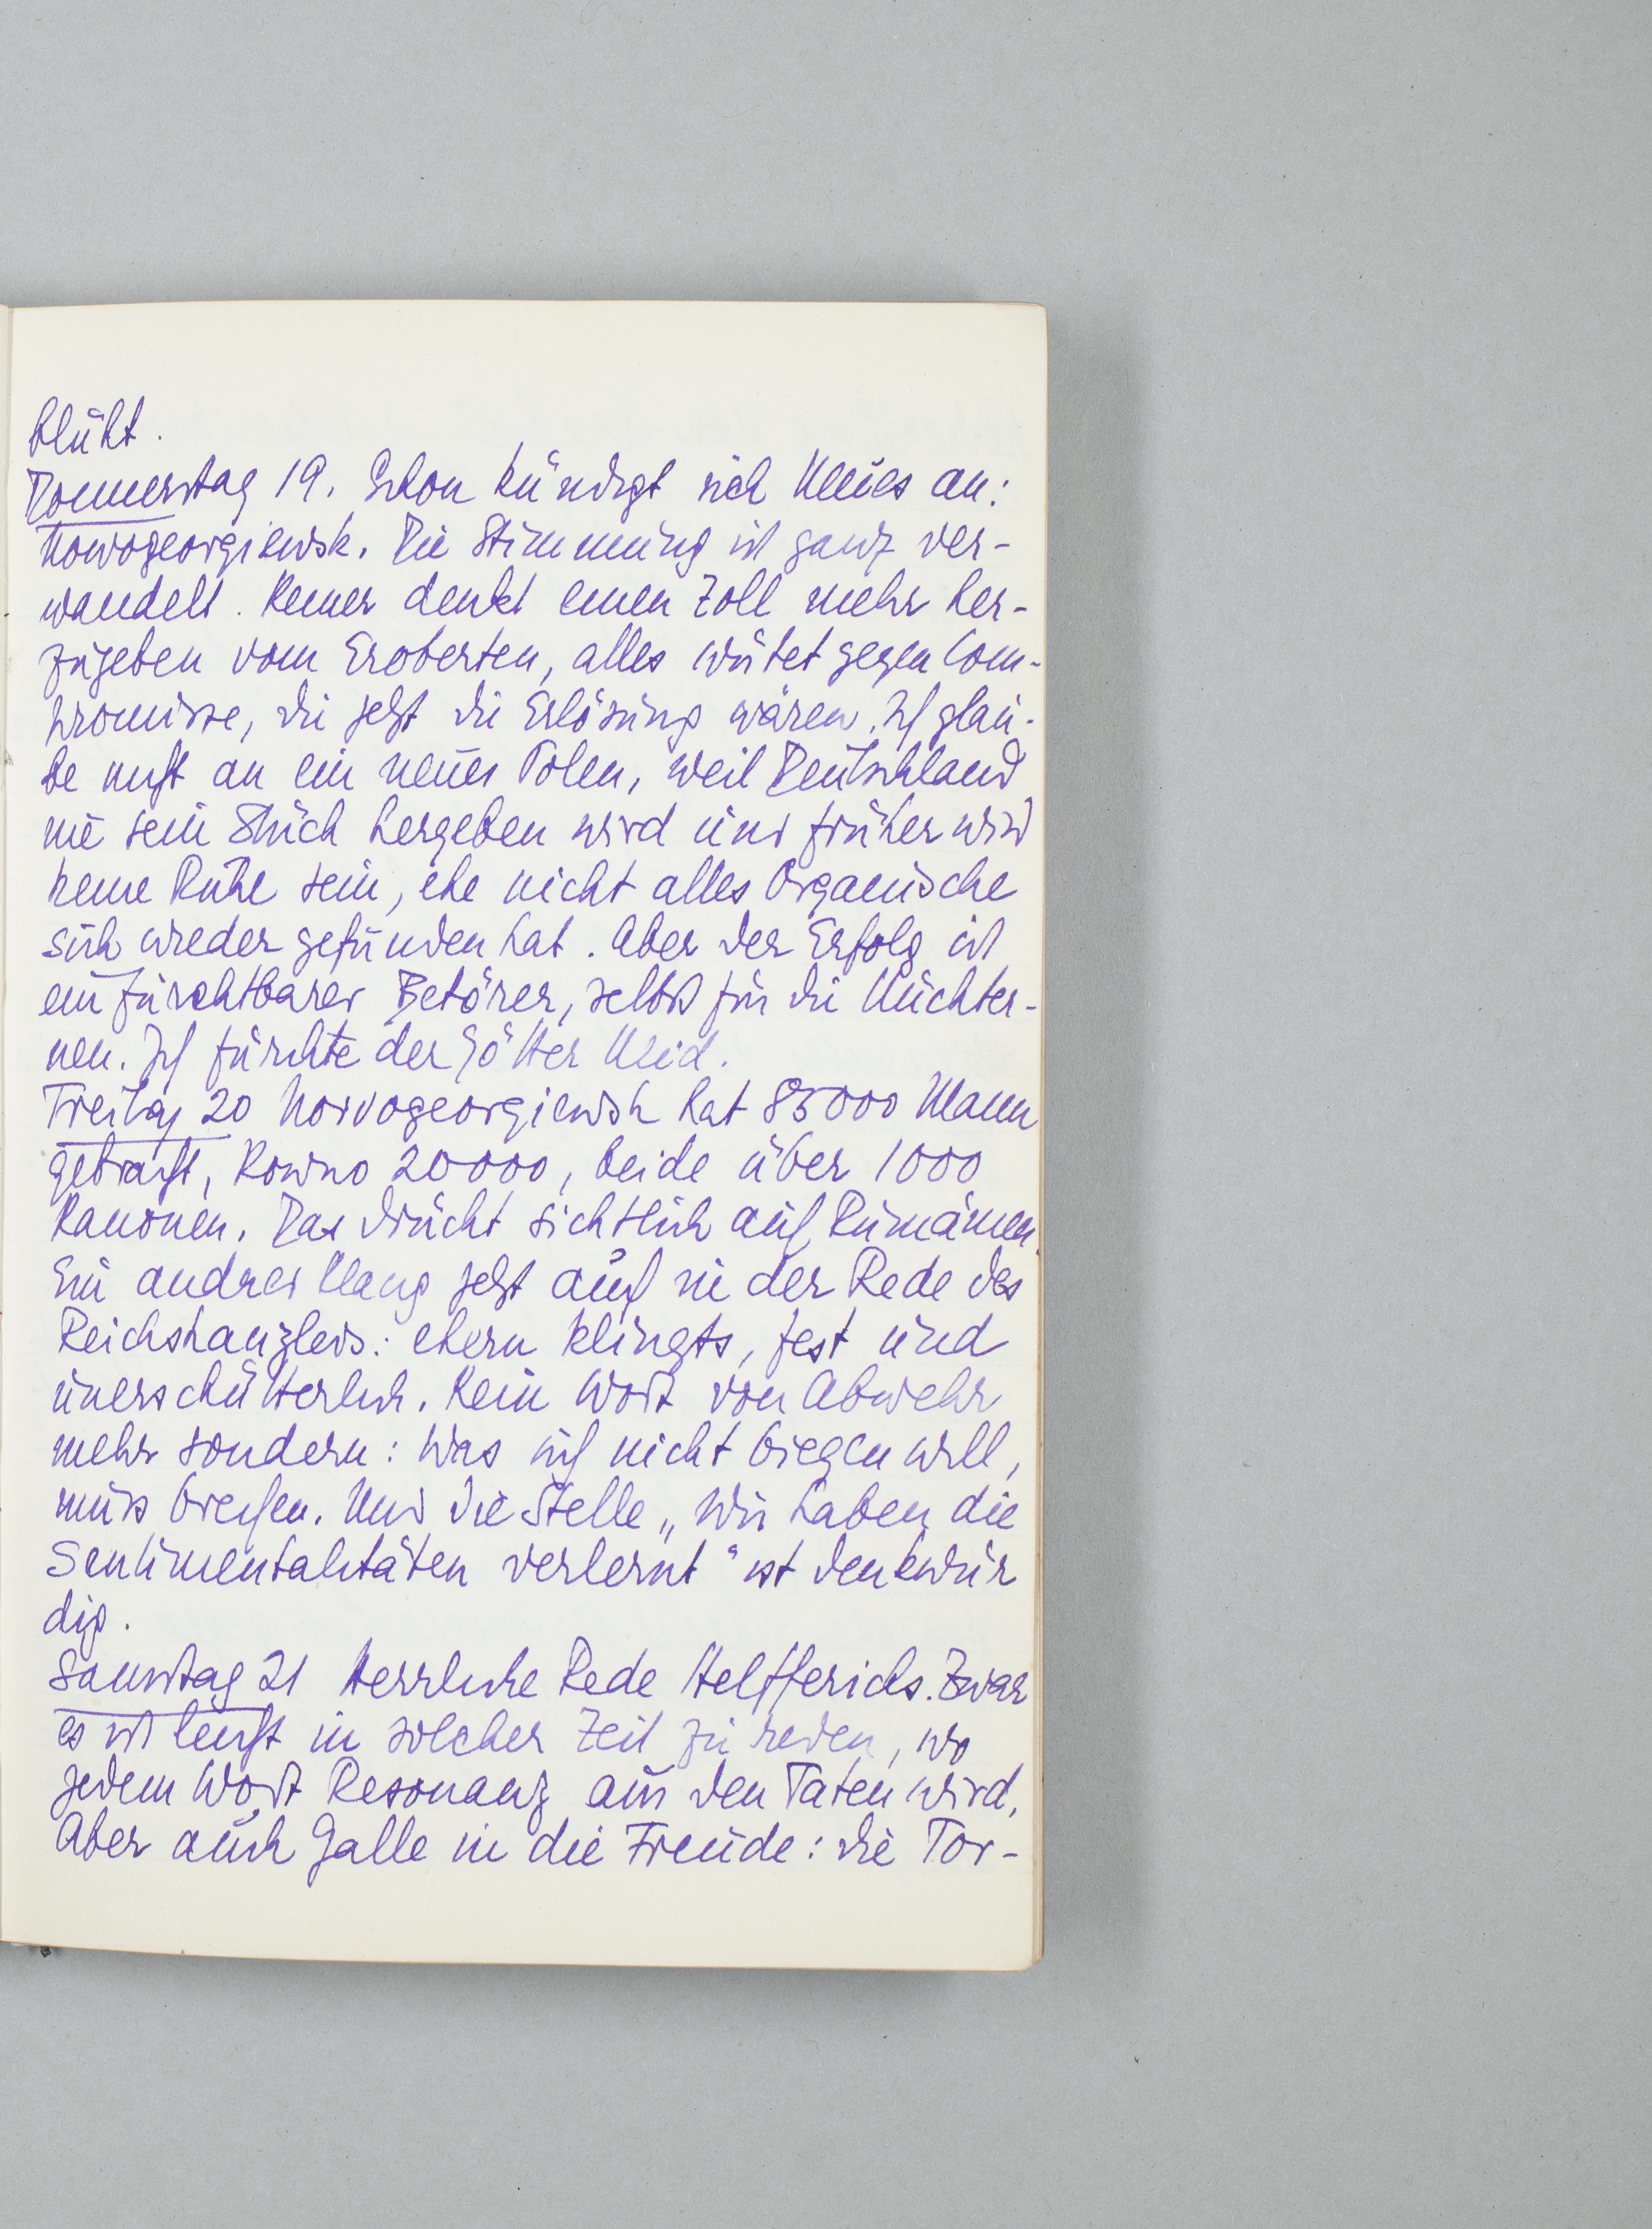 blüht.
Donnerstag 19. Schon kündigt sich Neues an:
Nowogeorgiewsk. Die Stimmung ist ganz ver-
wandelt. Keiner denkt einen Zoll mehr her-
zugeben vom Eroberten, alles wütet gegen Com-
promisse, die jetzt die Erlösung wären. Ich glau-
be nicht an ein neues Polen, weil Deutschland
nie sein Stück hergeben wird und früher wird
keine Ruhe sein, ehe nicht alles Organische
sich wieder gefunden hat. Aber der Erfolg ist
ein furchtbarer Betörer, selbst für die Nüchter-
nen. Ich fürchte der Götter Neid.
Freitag 20 Novogeorgiewsk hat 85000 Mann
gebracht, Kowno 20000, beide über 1000
Kanonen. Das drückt sichtlich auf Rumänien.
Ein andrer Klang jetzt auch in der Rede des
Reichskanzlers: ehern klingts, fest und
unerschütterlich. Kein Wort von Abwehr
mehr sondern: was sich nicht biegen will,
muss brechen. Und die Stelle „Wir haben die
Sentimentalitäten verlernt“ ist denkwür
dig.
Samstag 21 Herrliche Rede Helfferichs. Zwar
es ist leicht in solcher Zeit zu reden, wo
jedem Wort Resonanz aus den Taten wird.
Aber auch Galle in die Freude: die Tor-